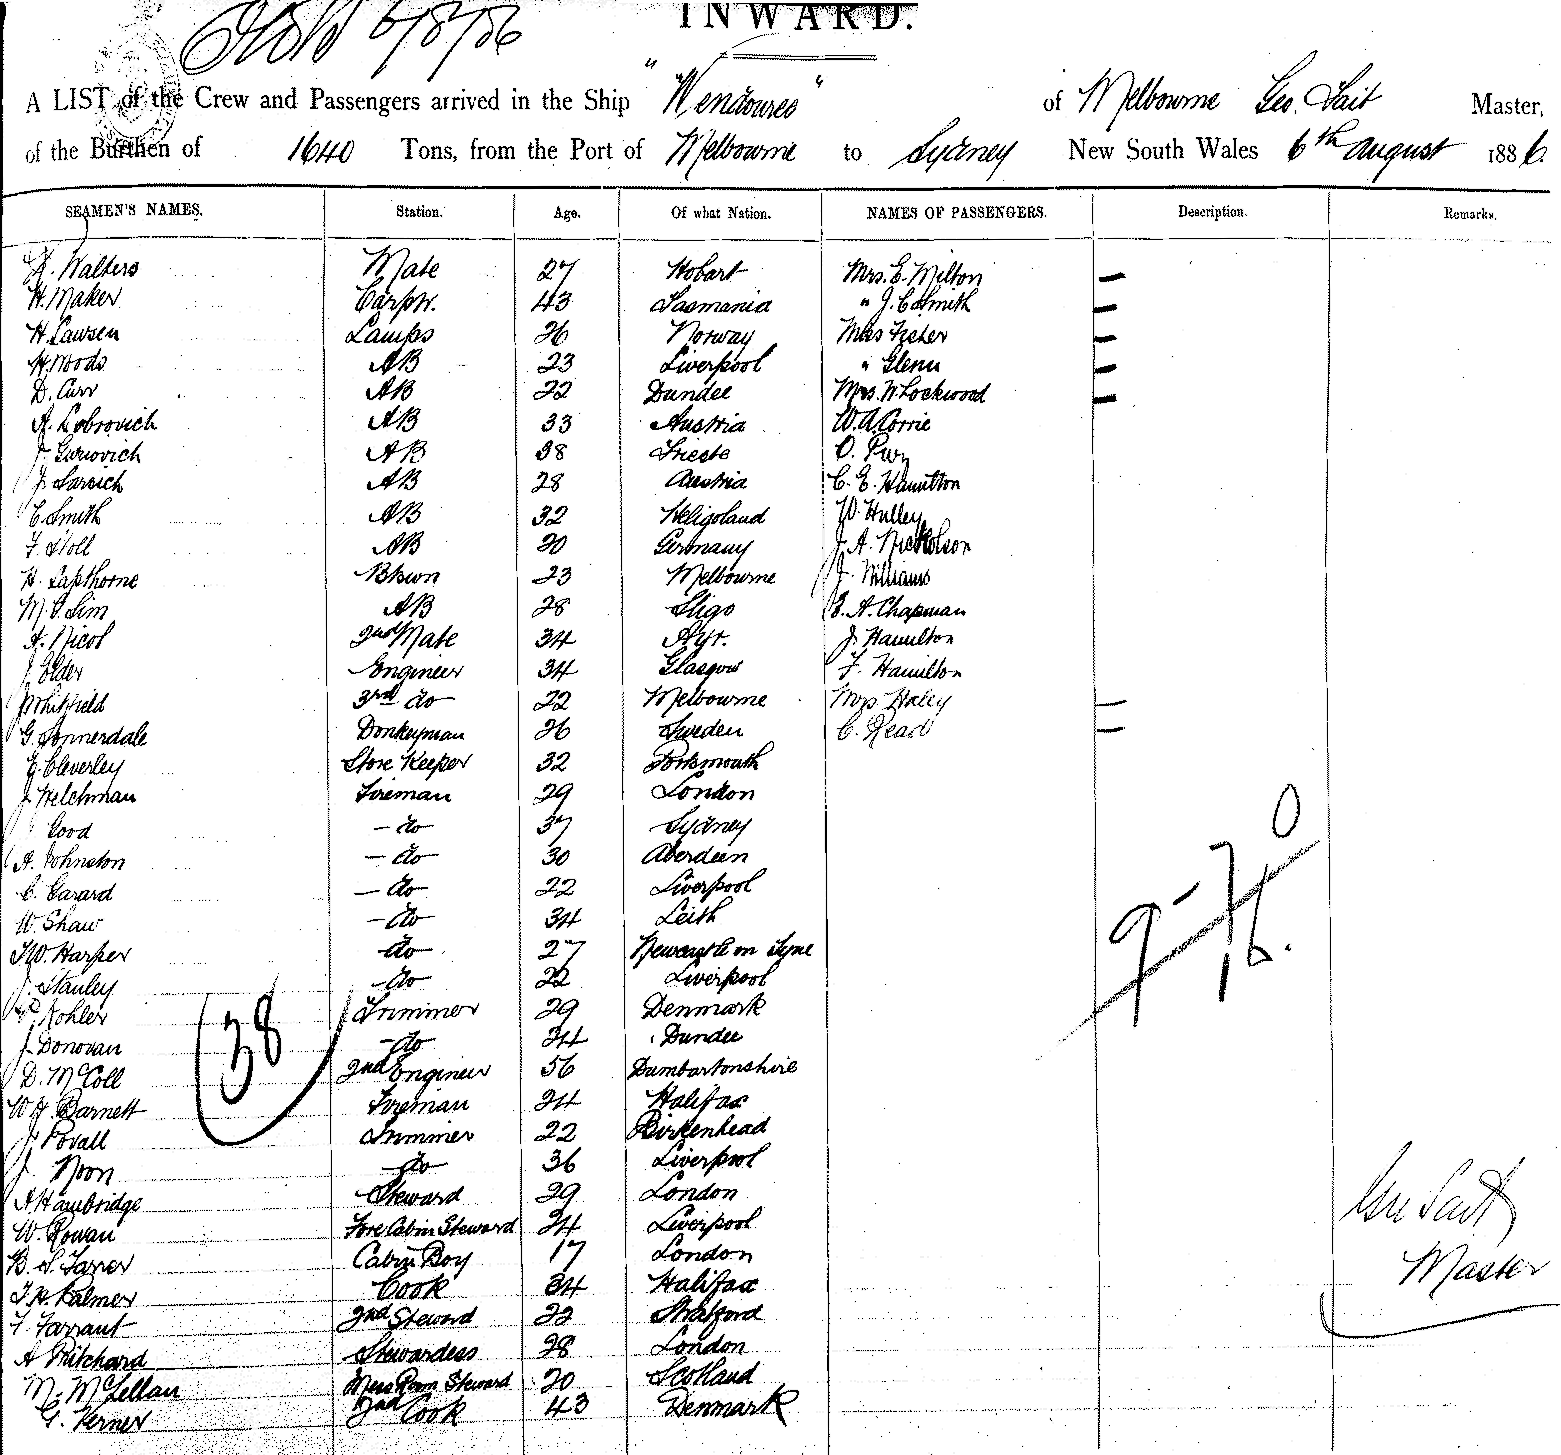 INWARD.
6/8/86
A LIST of the Crew and Passengers arrived in the Ship "Wendouree" of Melbourne Geo. Sait Master,
of the Burthen of 1640 Tons, from the Port of Melbourne to Sydney New South Wales 6th August 1886.
SEAMEN'S NAMES. Station. Age. Of what Nation. NAMES OF PASSENGERS. Description. Remarks.
Walters Mate 27 Hobart Mrs. E. Milton –
H. Maker Carptr. 43 Tasmania " J. C. Smith –
H. Lawsen Lamps 26 Norway Miss Fisher –
H. Woods AB 23 Liverpool " Glenn –
D. Carr AB 22 Dundee Mrs. W. Lockwood –
A. Lobrovich AB 33 Austria W. A. Corrie
J. AB 38 Trieste O.
J. Sarsich AB 28 Austria C. E. Hamilton
C. Smith AB 32 Heligoland W. Hulley
F. Stoll AB 20 Germany J. A. Nicholson
H. Lapthorne Bkwn 23 Melbourne J. Williams
M. Sim AB 28 Sligo E. A. Chapman
A. Nicol 2nd Mate 34 Ayr. J. Hamilton
J. Elder Engineer 34 Glasgow F. Hamilton
J. Whitfield 3rd do 22 Melbourne Mrs Haley –
G. Sonnerdale Donkeyman 26 Sweden C. Read –
E. Cleverley Store Keeper 32 Portsmouth
J. Welchman Fireman 29 London
Good – do 37 Sydney
A. Johnston – do 30 Aberdeen
C. Garard – do 22 Liverpool
W. Shaw – do 34 Leith
T. W. Harper do 27 Newcastle on Tyne
J. Stanley do 22 Liverpool
Kohler Trimmer 29 Denmark
J. Donovan do 24 Dundee
D. McColl 2nd Engineer 56 Dumbartonshire
W. H. Barnett Fireman 24 Halifax
J. Povall Trimmer 22 Birkenhead
J. Noon do 36 Liverpool
A. Hambridge Steward 29 London
W. Rowan Fore Cabin Steward 24 Liverpool
B. S. Farrer Cabin Boy 17 London
T. H. Palmer Cook 34 Halifax
F. Farrant 2nd Steward 22 Stratford
A. Pritchard Stewardess 28 London
M. McLellan Mess Room Steward 20 Scotland
G. Verner 2nd Cook 43 Denmark
38
9 - 7 0
16.
Geo Sait
Master